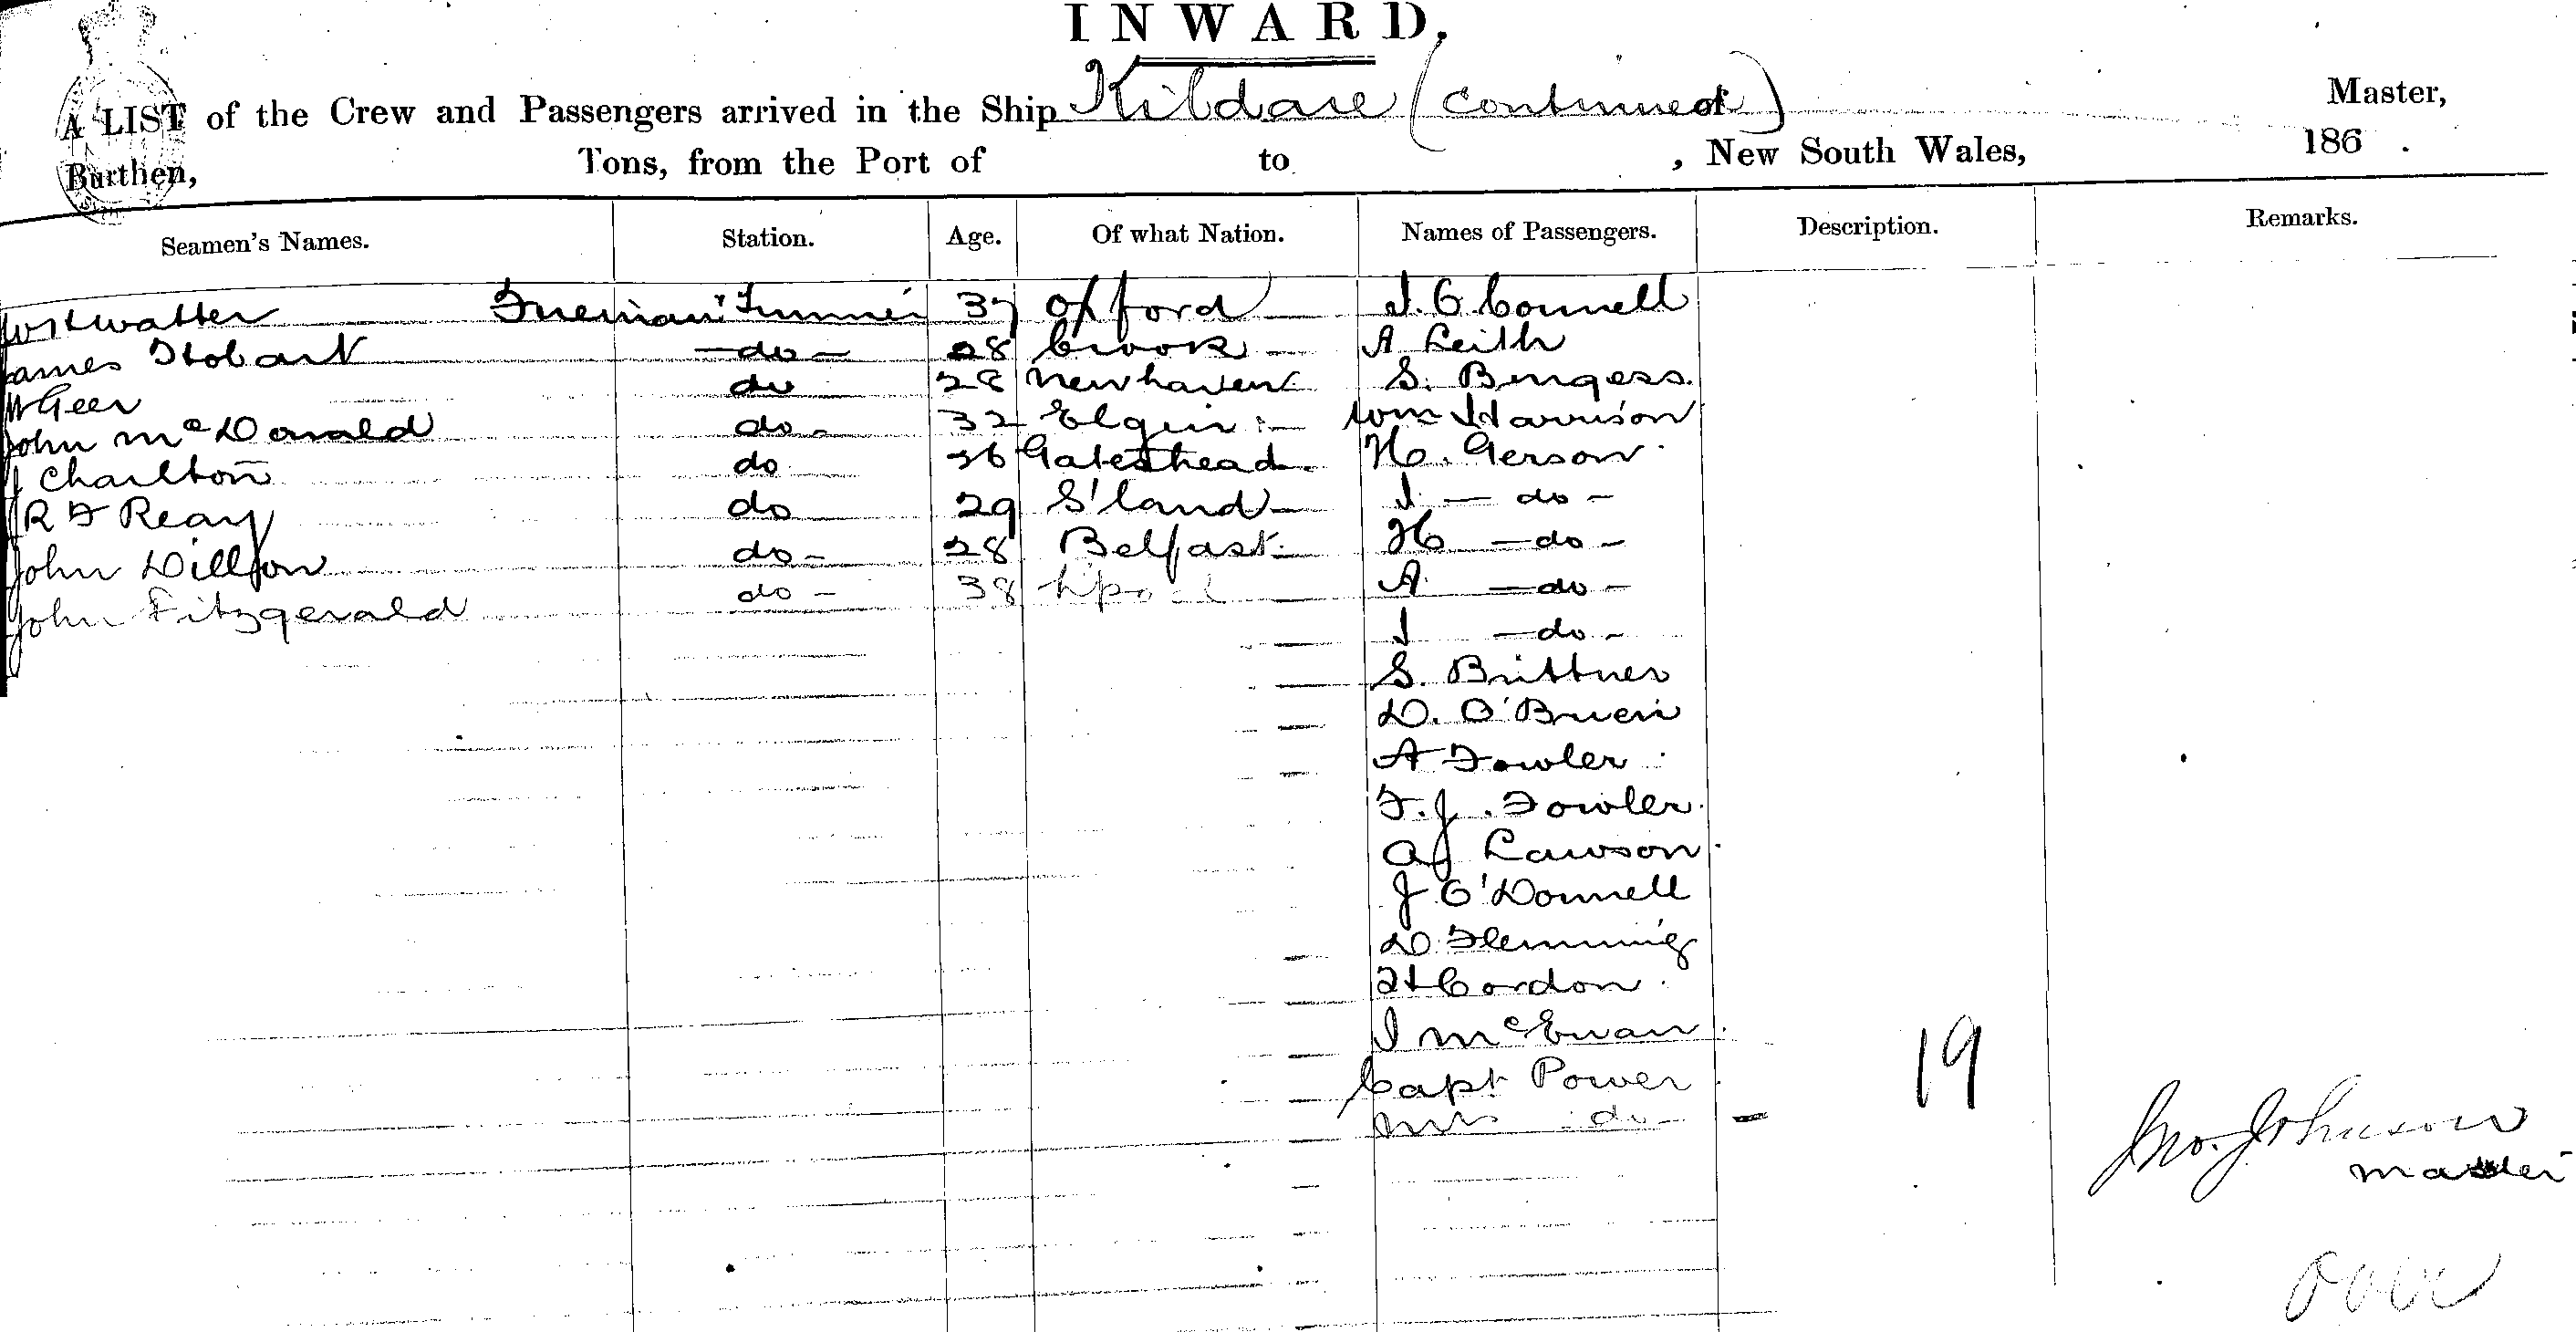 INWARD.
A LIST of the Crew and Passengers arrived in the Ship Kildare (continued) Master,
Burthen, Tons, from the Port of to , New South Wales, 186 .
Seamen's Names. Station. Age. Of what Nation. Names of Passengers. Description. Remarks.
Fireman & Trimmer 37 Oxford J. O'Connell
James Stobart - do - 28 Crook A Leith
W Geer do 28 Newhaven S. Burgess.
John McDonald do - 32 Elgin Wm Harrison
J Charlton do 36 Gateshead H. Gerson
R F Reay do 29 S'land J - do -
John Dillon do - 28 Belfast H - do -
John Fitzgerald do - 38 L'pool A - do -
J - do -
S. Brittner
D. O'Brien
A Fowler
F. J. Fowler
A J Lawson
J O'Donnell
D Flemming
H Cordon
J McEwan
Capt Power
Mrs do -
19
Jno. Johnson
Master
over